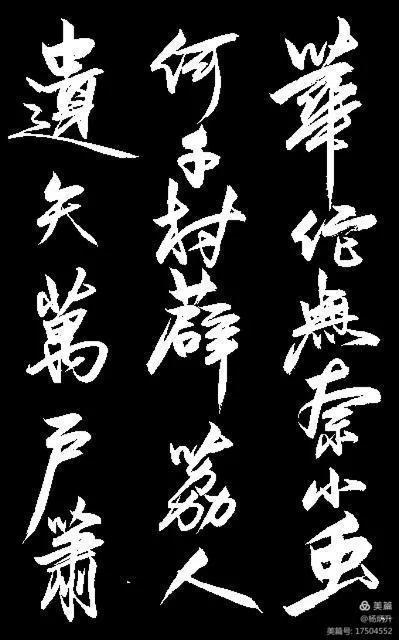 華佗無奈小虫
何千村薜荔人
遺矢萬户蕭
美篇
@杨炳升
美篇号: 17504552